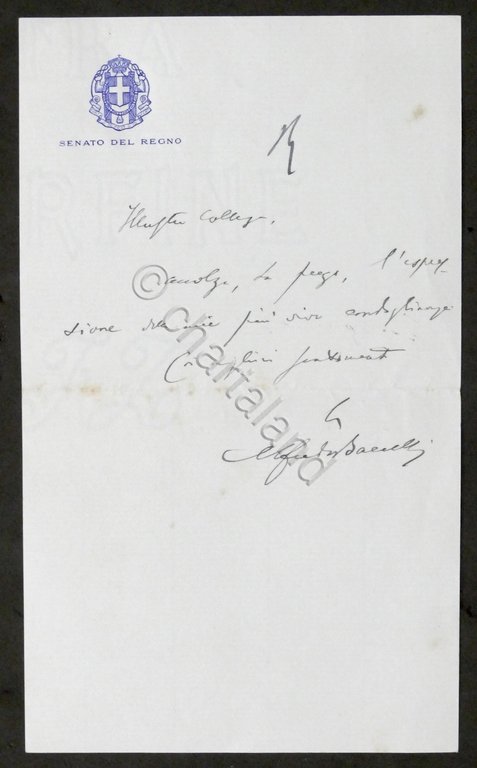 SENATO DEL REGNO
R
Illustre Collega,
accolga, La prego, l'espres-
sione delle mie più vive condoglianze
Con sentimenti
Alfredo Baccelli
© Chartaland